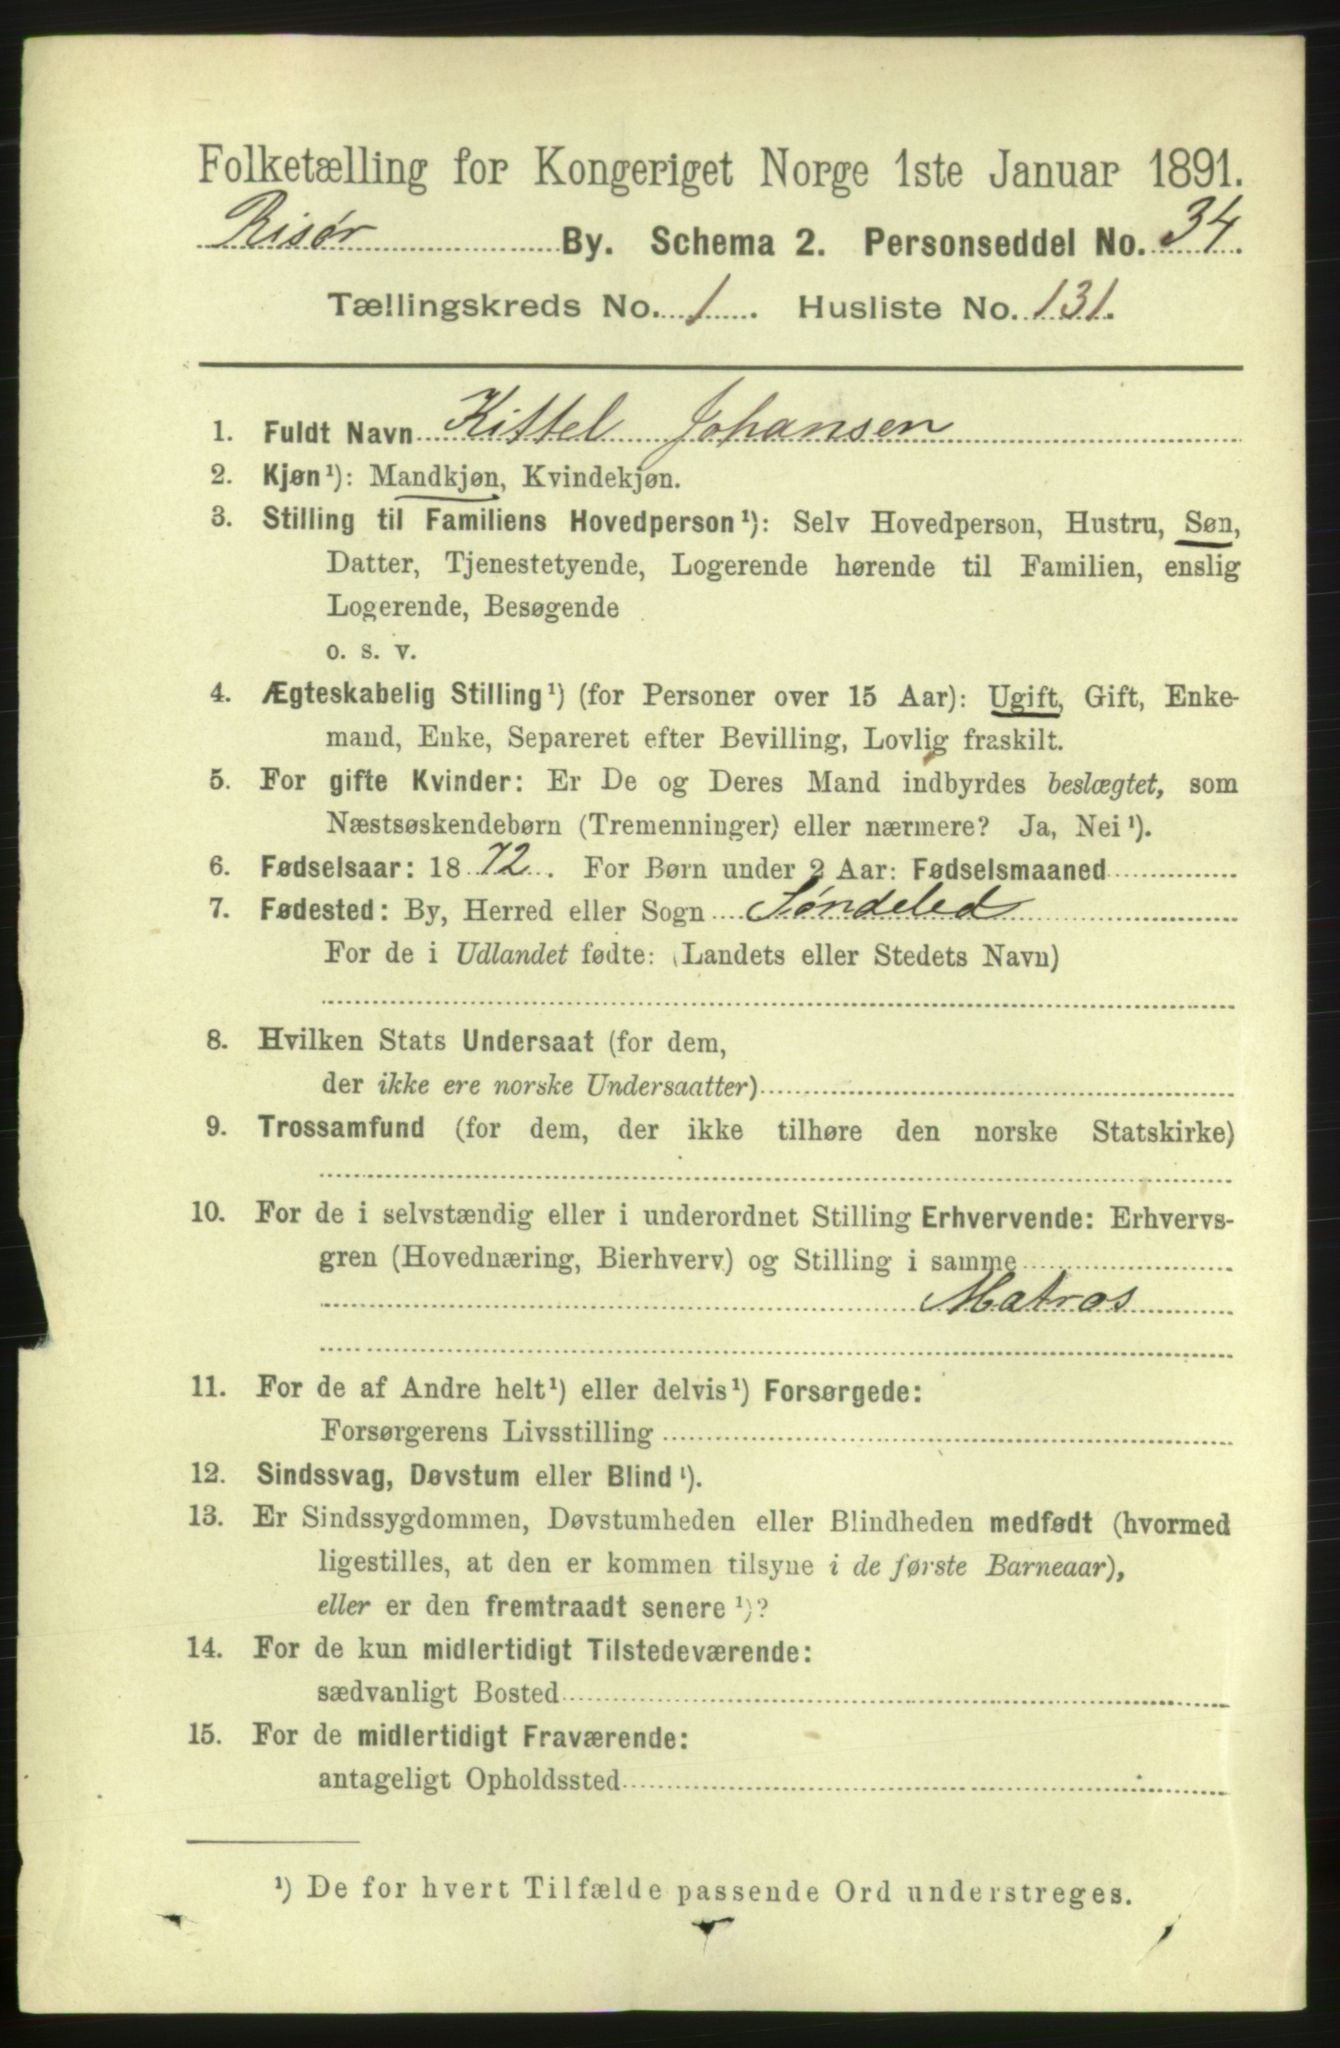 Folketælling for Kongeriget Norge 1ste Januar 1891.
Risør By. Schema 2. Personseddel No. 34.
Tællingskreds No. 1. Husliste No. 131.
1. Fuldt Navn Kittel Johansen
2. Kjøn¹): Mandkjøn, Kvindekjøn.
3. Stilling til Familiens Hovedperson¹): Selv Hovedperson, Hustru, Søn,
Datter, Tjenestetyende, Logerende hørende til Familien, enslig
Logerende, Besøgende
o. s. v.
4. Ægteskabelig Stilling¹) (for Personer over 15 Aar): Ugift, Gift, Enke-
mand, Enke, Separeret efter Bevilling, Lovlig fraskilt.
5. For gifte Kvinder: Er De og Deres Mand indbyrdes beslægtet, som
Næstsøskendebørn (Tremenninger) eller nærmere? Ja, Nei¹).
6. Fødselsaar: 1872. For Børn under 2 Aar: Fødselsmaaned
7. Fødested: By, Herred eller Sogn Søndeled
For de i Udlandet fødte: (Landets eller Stedets Navn)
8. Hvilken Stats Undersaat (for dem,
der ikke ere norske Undersaatter)
9. Trossamfund (for dem, der ikke tilhøre den norske Statskirke)
10. For de i selvstændig eller i underordnet Stilling Erhvervende: Erhvervs-
gren (Hovednæring, Bierhverv) og Stilling i samme
Matros
11. For de af Andre helt¹) eller delvis¹) Forsørgede:
Forsørgerens Livsstilling
12. Sindssvag, Døvstum eller Blind¹).
13. Er Sindssygdommen, Døvstumheden eller Blindheden medfødt (hvormed
ligestilles, at den er kommen tilsyne i de første Barneaar),
eller er den fremtraadt senere¹)?
14. For de kun midlertidigt Tilstedeværende:
sædvanligt Bosted
15. For de midlertidigt Fraværende:
antageligt Opholdssted
¹) De for hvert Tilfælde passende Ord understreges.